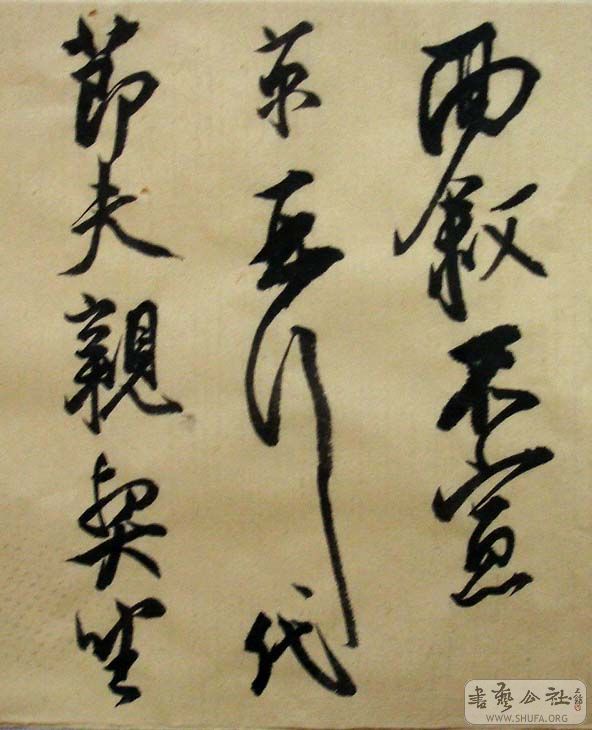 面叙不宣
京再拜代
節夫親契坐
書藝公社
WWW.SHUFA.ORG